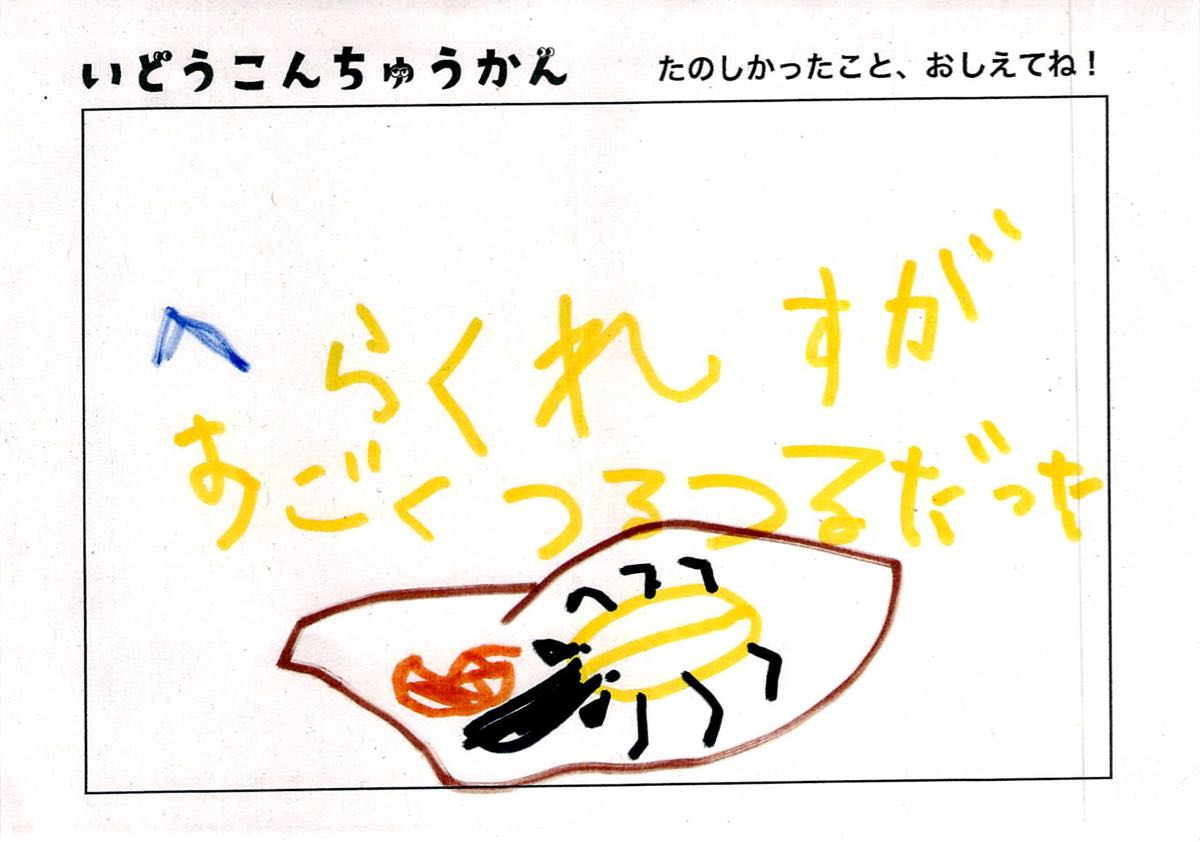 いどうこんちゅうかん たのしかったこと、おしえてね！
へらくれすが
すごくつるつるだった